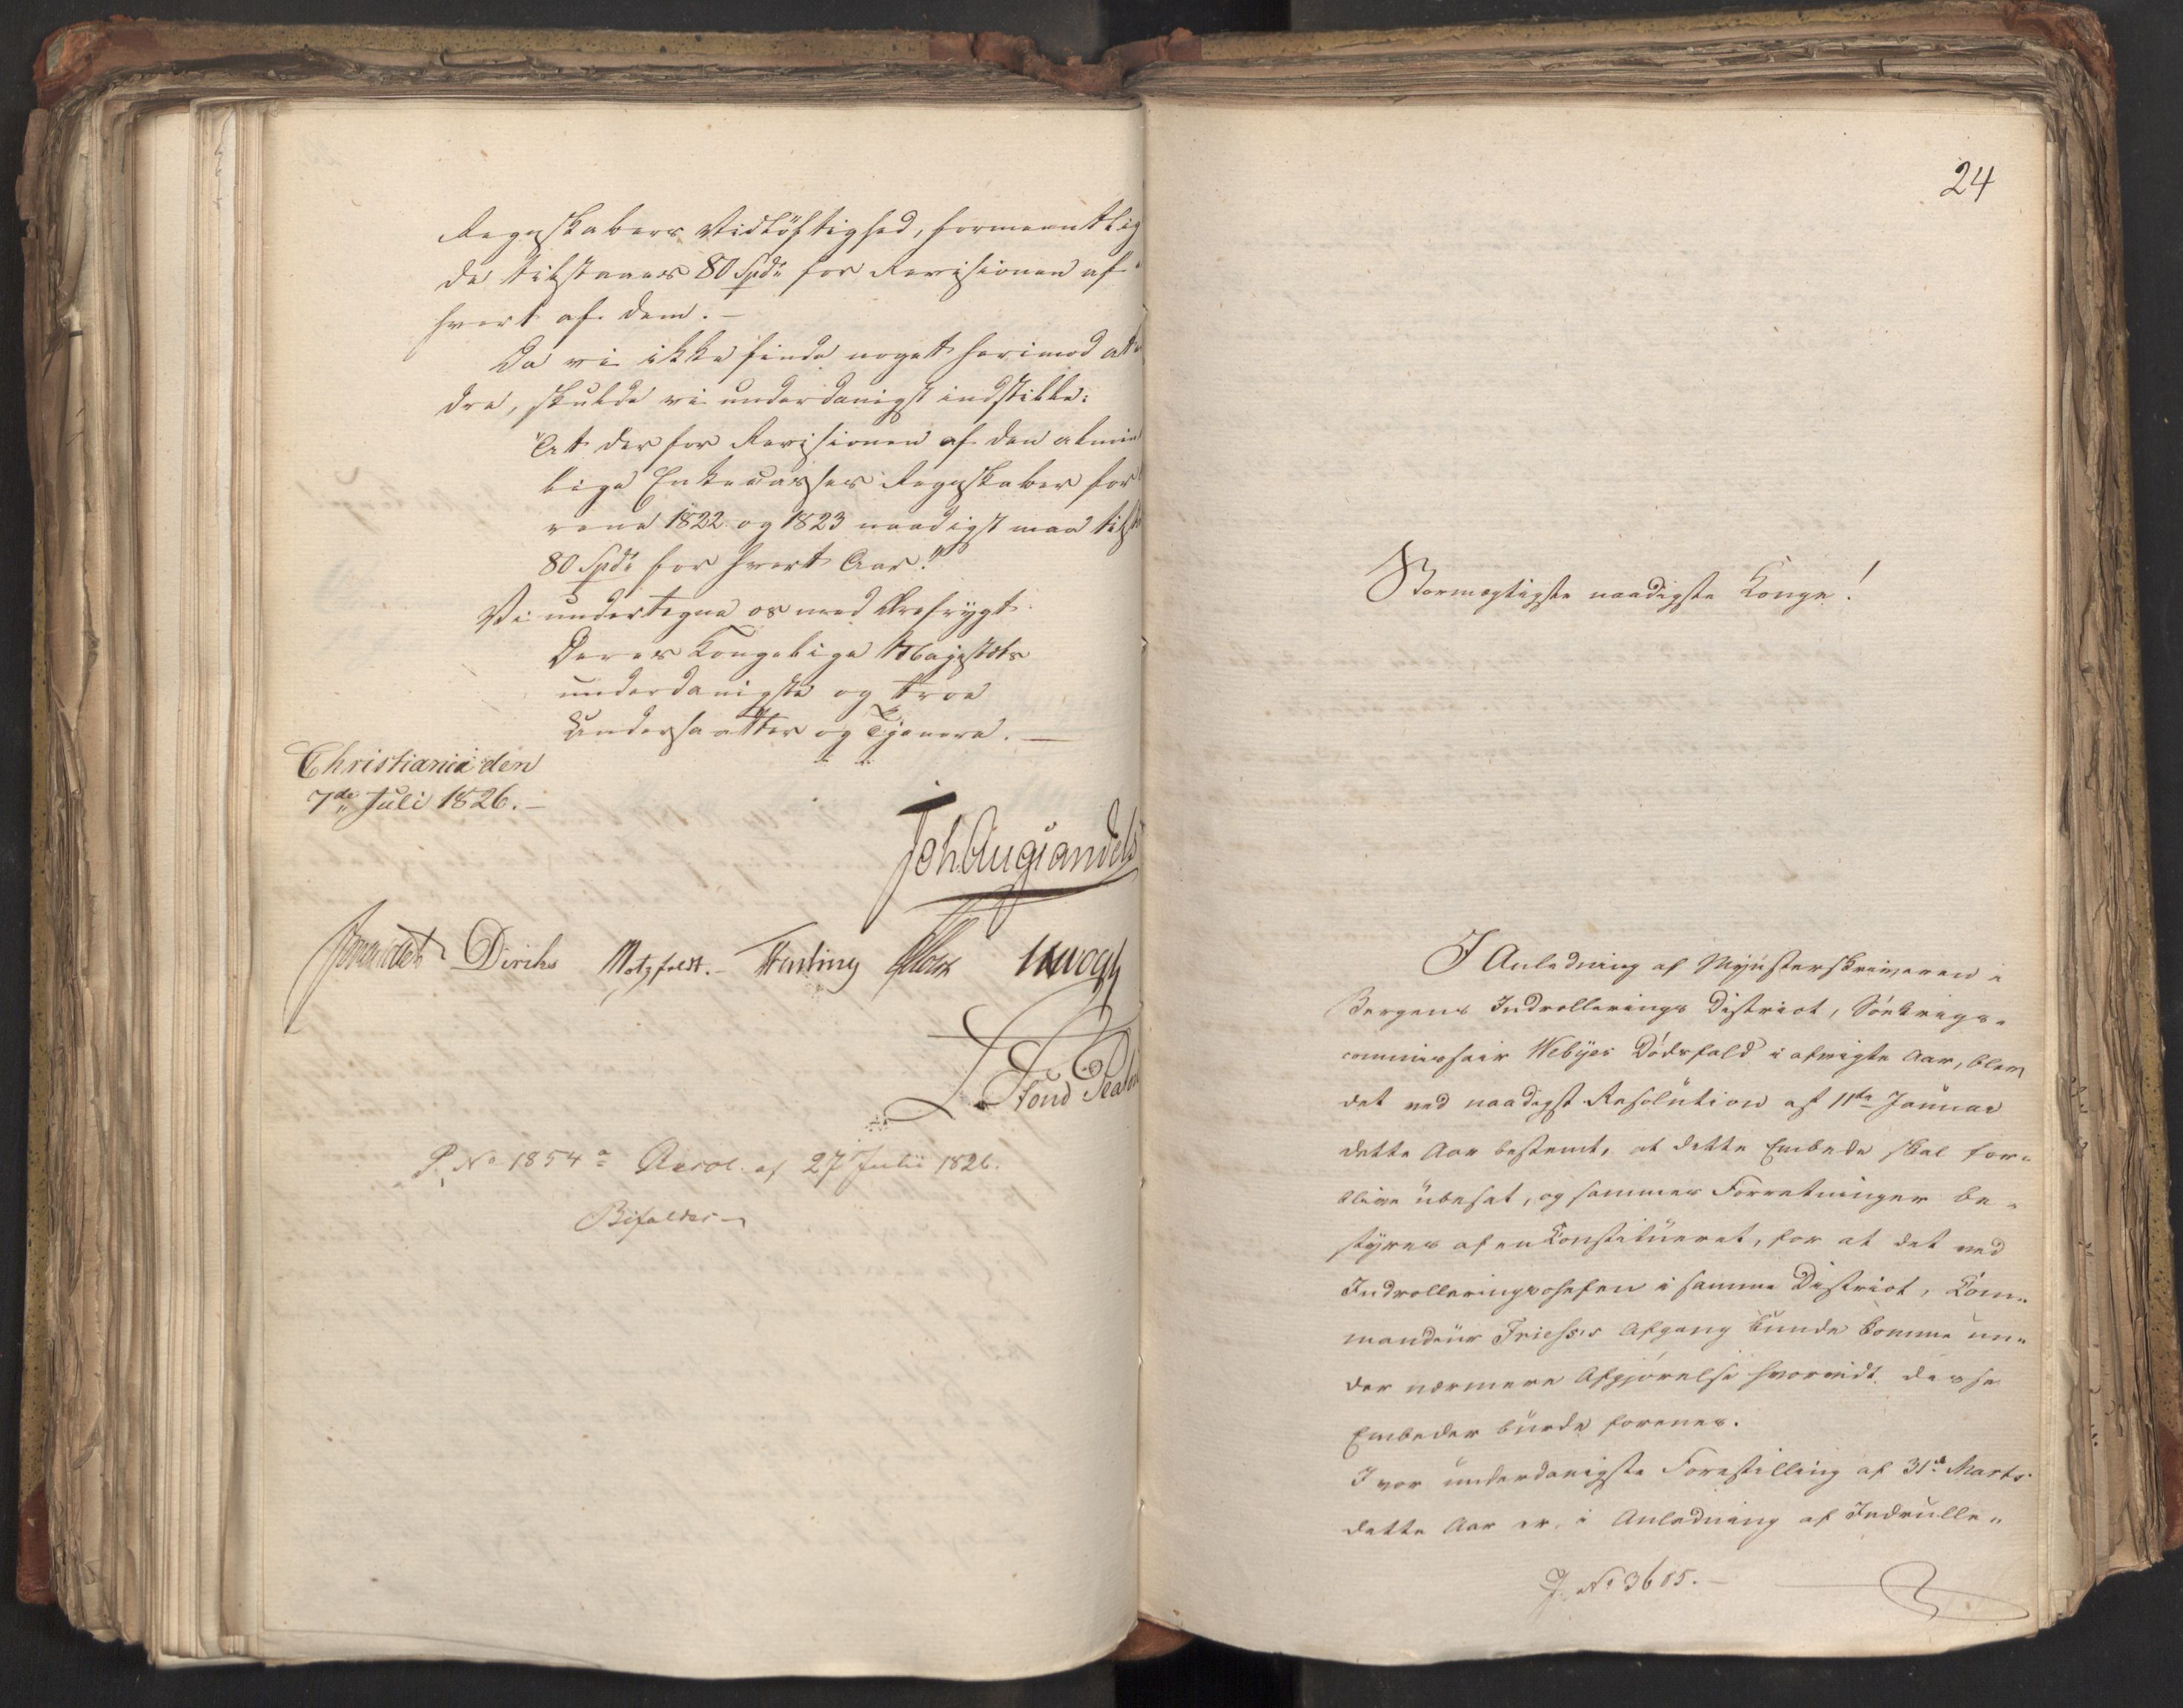 Regnskabers Vidtløftighed, formeentlig
de tilstaaes 80 Spd for Revisionen af
hvert af dem. —
Da vi ikke finde noget herimod at
dre, skulde vi underdanigst indstille:
"At der for Revisionen af den almin
lige Enkecasses Regnskaber for
rene 1822 og 1823 naadigst maa tilst
80 Spd for hvert Aar."
Vi undertegne os med Ærefrygt
Deres Kongelige Majestæts
underdanigste og troe
Undersaatter og Tjenere. —
Christiania den
7de Juli 1826. —
Joh. Aug. Sandels
Sommerfeldt Diriks Motzfeldt. Fasting Holst Krogh
P. No 1854a Resol. af 27 Julii 1826.
Bifaldes
24
Stormægtigste naadigste Konge!
I Anledning af Mynsterskriveren i
Bergens Indrollerings District, Søekrigs-
commissair Webyes Dødsfald i afvigte Aar, blev
det ved naadigst Resolution af 11te Januar
dette Aar bestemt, at dette Embede skal for-
blive ubesat, og sammes Forretninger be-
styres af en Constitueret, for at det ved
Indrolleringschefen i samme District, Com-
mandeur Friess's Afgang kunde komme un-
der nærmere Afgjørelse hvorvidt disse
Embeder burde forenes.
I vor underdanigste Forestilling af 31te Marts
dette Aar er, i Anledning af Indrulle-
J. No 3605. —